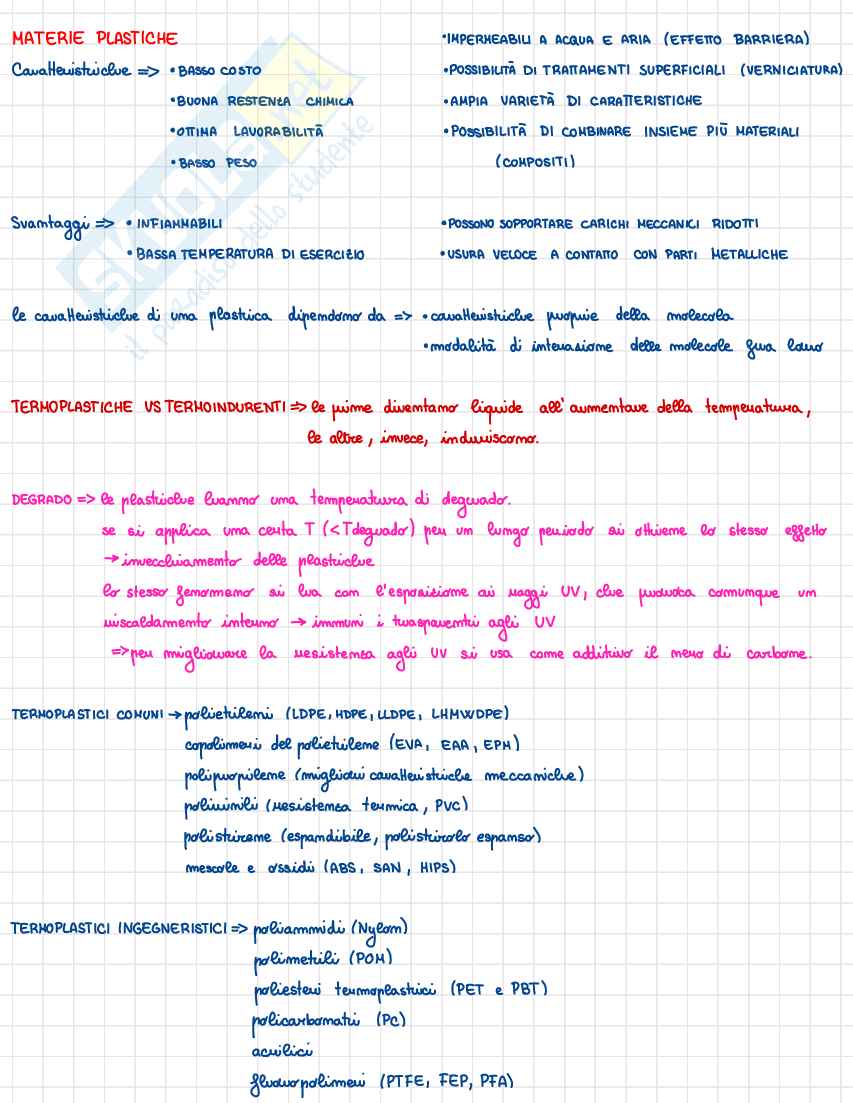 MATERIE PLASTICHE
Caratteristiche => • BASSO COSTO
• BUONA RESTENZA CHIMICA
• OTTIMA LAVORABILITÀ
• BASSO PESO
• IMPERMEABILI A ACQUA E ARIA (EFFETTO BARRIERA)
• POSSIBILITÀ DI TRATTAMENTI SUPERFICIALI (VERNICIATURA)
• AMPIA VARIETÀ DI CARATTERISTICHE
• POSSIBILITÀ DI COMBINARE INSIEME PIÙ MATERIALI
(COMPOSITI)
Svantaggi => • INFIAMMABILI
• BASSA TEMPERATURA DI ESERCIZIO
• POSSONO SOPPORTARE CARICHI MECCANICI RIDOTTI
• USURA VELOCE A CONTATTO CON PARTI METALLICHE
le caratteristiche di una plastica dipendono da => • caratteristiche proprie della molecola
• modalità di interazione delle molecole fra loro
TERMOPLASTICHE VS TERMOINDURENTI => le prime diventano liquide all'aumentare della temperatura,
le altre, invece, induriscono.
DEGRADO => le plastiche hanno una temperatura di degrado.
se si applica una certa T (<Tdegrado) per un lungo periodo si ottiene lo stesso effetto
→ invecchiamento delle plastiche
lo stesso fenomeno si ha con l'esposizione ai raggi UV, che provoca comunque un
riscaldamento interno → immuni i trasparenti agli UV
=> per migliorare la resistenza agli UV si usa come additivo il nero di carbone.
TERMOPLASTICI COMUNI → polietileni (LDPE, HDPE, LLDPE, LHMWDPE)
copolimeri del polietilene (EVA, EAA, EPM)
polipropilene (migliori caratteristiche meccaniche)
polivinili (resistenza termica, PVC)
polistirene (espandibile, polistirolo espanso)
mescole e ossidi (ABS, SAN, HIPS)
TERMOPLASTICI INGEGNERISTICI => poliammidi (Nylon)
polimetili (POM)
poliesteri termoplastici (PET e PBT)
policarbonati (PC)
acrilici
fluoropolimeri (PTFE, FEP, PFA)
SKUOLA.net
il paradiso dello studente